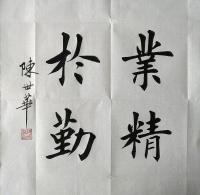 業精
於勤
陳世華